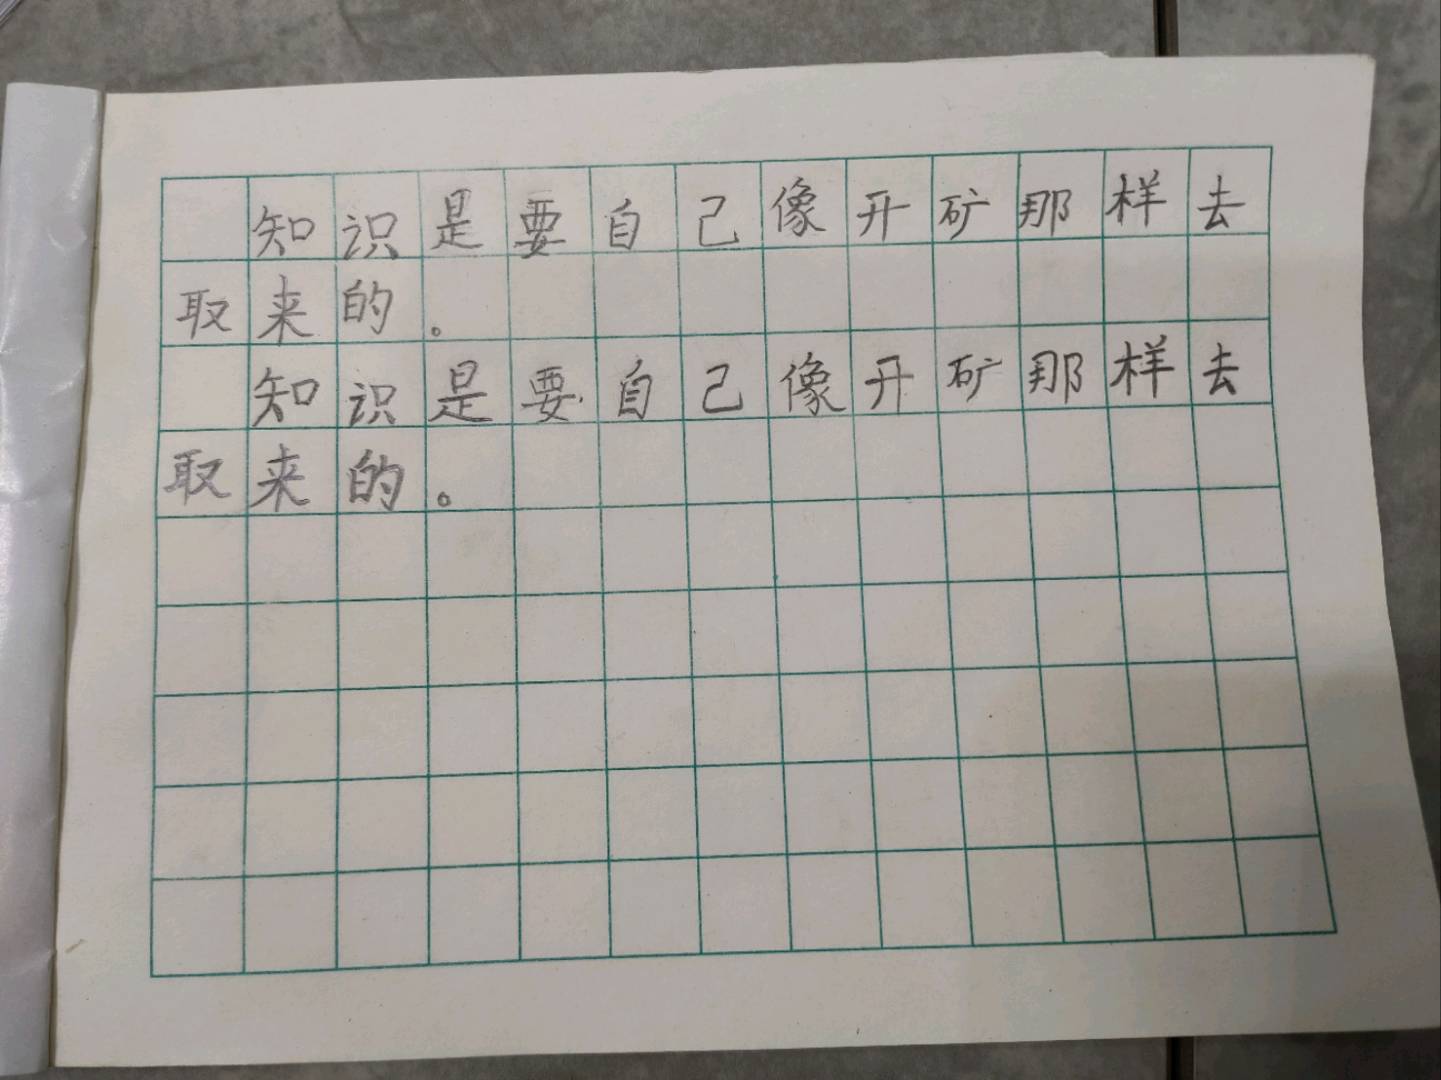 知识是要自己像开矿那样去
取来的。
知识是要自己像开矿那样去
取来的。